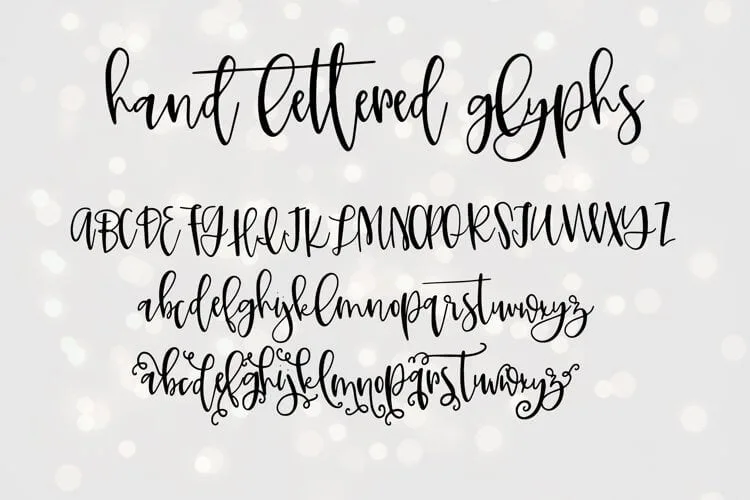 hand lettered glyphs
ABCDEFGHIJKLMNOPQRSTUVWXYZ
abcdefghijklmnopqrstuvwxyz
abcdefghijklmnopqrstuvwxyz